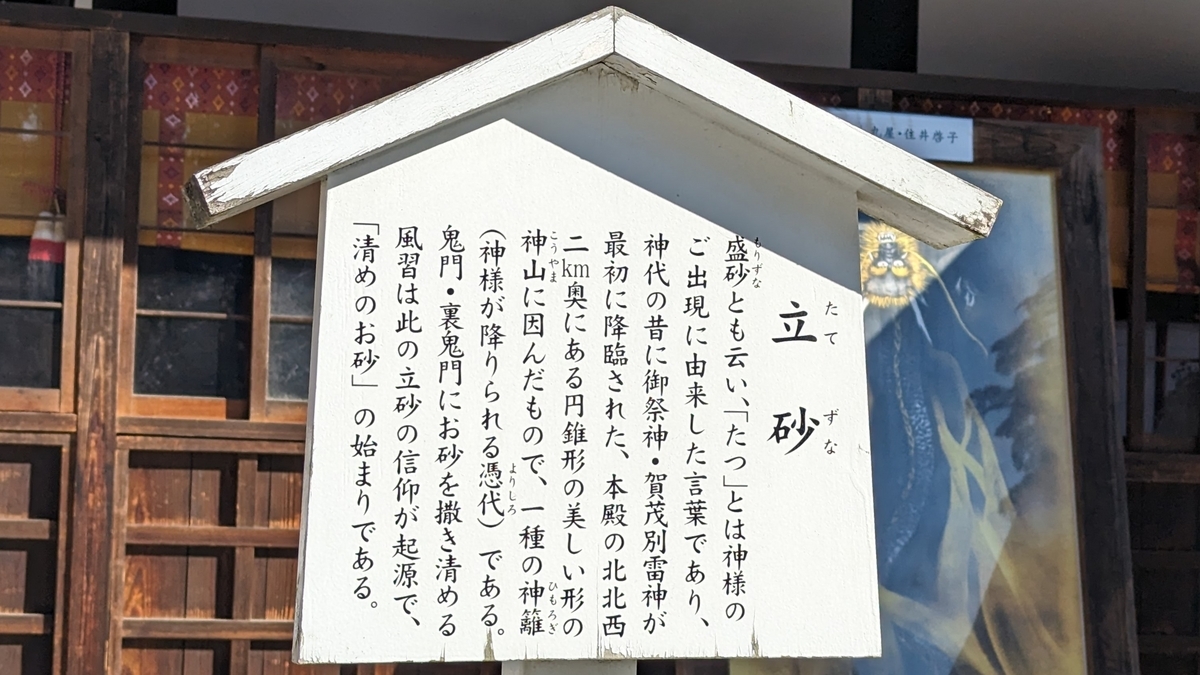 立砂
たてずな
盛砂とも云い、「たつ」とは神様の
もりずな
ご出現に由来した言葉であり、
神代の昔に御祭神・賀茂別雷神が
最初に降臨された、本殿の北北西
二km奥にある円錐形の美しい形の
神山に因んだもので、一種の神籬
こうやま
ひもろぎ
(神様が降りられる憑代)である。
よりしろ
鬼門・裏鬼門にお砂を撒き清める
風習は此の立砂の信仰が起源で、
「清めのお砂」の始まりである。
屋・住井啓子